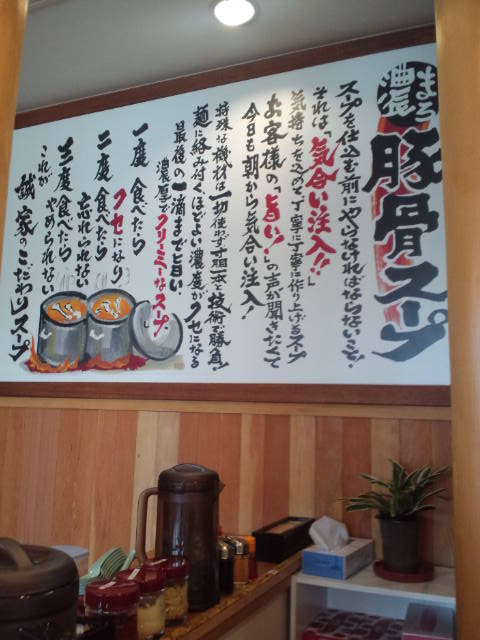 まろ濃
豚骨スープ
スープを仕込む前にやらなければならないこと、
それは「気合い注入!!」
気持ちを込めて丁寧に丁寧に作り上げるスープ
お客様の「旨い!」の声が聞きたくて
今日も朝から気合い注入!
特殊な機材は一切使わず寸胴一本と技術で勝負!
麺に絡み付く、ほどよい濃度がクセになる
最後の一滴まで旨い、
濃厚でクリーミーなスープ
一度食べたら
クセになり
二度食べたら
忘れられない
三度食べたら
やめられない
これが
誠家のこだわりスープ